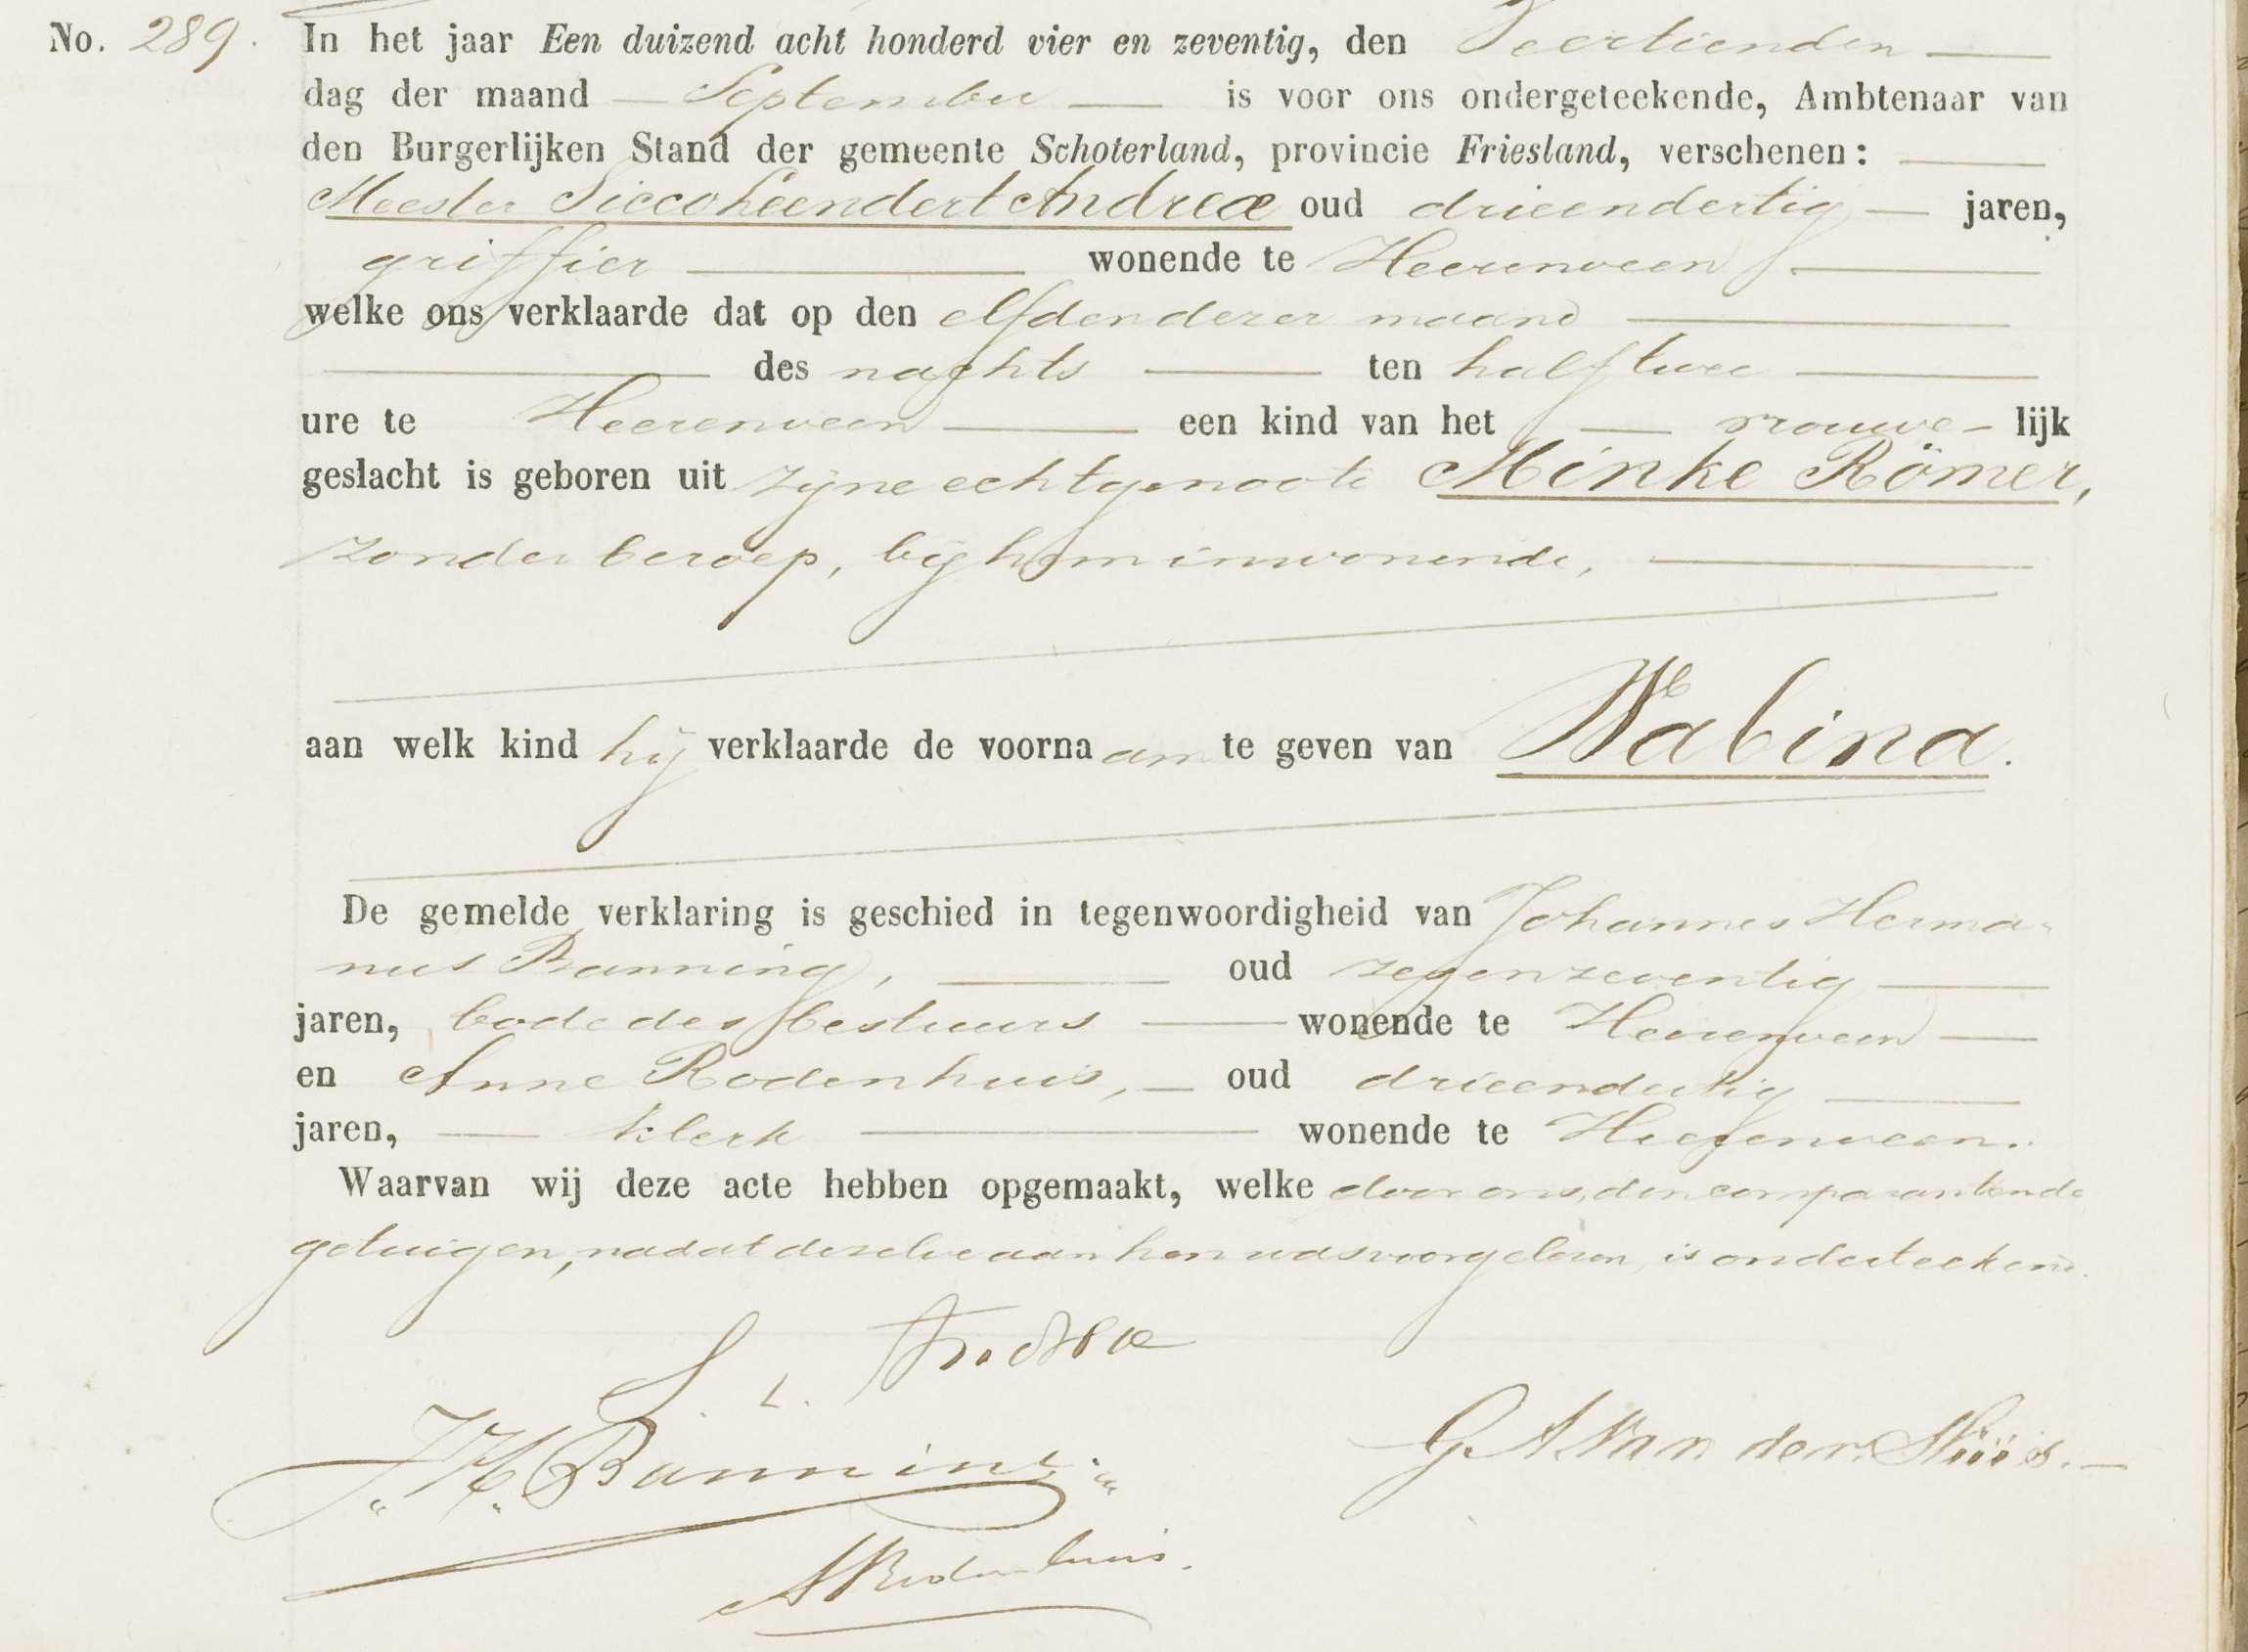 No. 289. In het jaar Een duizend acht honderd vier en zeventig, den Veertienden
dag der maand September is voor ons ondergeteekende, Ambtenaar van
den Burgerlijken Stand der gemeente Schoterland, provincie Friesland, verschenen:
Meester Sicco Leendert Andreæ oud drieendertig jaren,
griffier wonende te Heerenveen
welke ons verklaarde dat op den elfden dezer maand
des nachts ten half twee
ure te Heerenveen een kind van het vrouwe- lijk
geslacht is geboren uit zijne echtgenoote Minke Römer,
zonder beroep, bij hem inwonende,
aan welk kind hij verklaarde de voornaam te geven van Wabina.
De gemelde verklaring is geschied in tegenwoordigheid van Johannes Herma-
nus Banning, oud zegenzeventig
jaren, bode des bestuurs wonende te Heerenveen
en Anne Rodenhuis, oud drieendertig
jaren, klerk wonende te Heerenveen.
Waarvan wij deze acte hebben opgemaakt, welke door ons, den comparant en de
getuigen, nadat dezelve aan hen was voorgelezen, is onderteekend.
S. L. Andreæ
J. H. Banning
G A Van der Slüis.
A Rodenhuis.